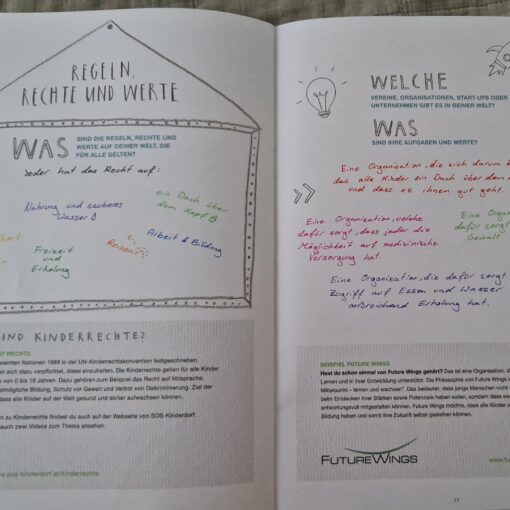 REGELN,
RECHTE UND WERTE
WAS
SIND DIE REGELN, RECHTE UND
WERTE AUF DEINER WELT, DIE
FÜR ALLE GELTEN?
Jeder hat das Recht auf:
Nahrung und sauberes
Wasser
ein Dach über
dem Kopf
Freizeit
und
Erholung
Arbeit & Bildung
IND KINDERRECHTE?
T RECHTE.
ereinten Nationen 1989 in der UN-Kinderrechtskonvention festgeschrieben.
en sich dazu verpflichtet, diese einzuhalten. Die Kinderrechte gelten für alle Kinder
von 0 bis 18 Jahren. Dazu gehören zum Beispiel das Recht auf Mitsprache,
stmögliche Bildung, Schutz vor Gewalt und Verbot von Diskriminierung. Ziel der
ist, dass alle Kinder auf der Welt gesund und sicher aufwachsen können.
en zu Kinderrechte findest du auch auf der Webseite von SOS-Kinderdorf.
auch zwei Videos zum Thema ansehen.
kinderdorf.at/kinderrechte
WELCHE
VEREINE, ORGANISATIONEN, START-UPS ODER
UNTERNEHMEN GIBT ES IN DEINER WELT?
WAS
SIND IHRE AUFGABEN UND WERTE?
Eine Organisation, die sich darum
das alle Kinder ein Dach über den
und dass es ihnen gut geht.
Eine Organisation, welche
dafür sorgt, dass jeder die
Möglichkeit auf medizinische
Versorgung hat.
Eine Organis
dafür sorgt
Gewalt
Eine Organisation, die dafür sorgt
Zugriff auf Essen und Wasser
ausreichend Erholung hat.
BEISPIEL FUTURE WINGS
Hast du schon einmal von Future Wings gehört? Das ist eine Organisation, d
Lernen und in ihrer Entwicklung unterstützt. Die Philosophie von Future Wings
Mittelpunkt – lernen und wachsen". Das bedeutet, dass junge Menschen nicht
beim Entdecken ihrer Stärken sowie Potenziale haben sollen, sondern dass sie
verantwortungsvoll mitgestalten können. Future Wings möchte, dass alle Kinder u
Bildung haben und somit ihre Zukunft selbst gestalten können.
FUTUREWINGS
www.fu
17